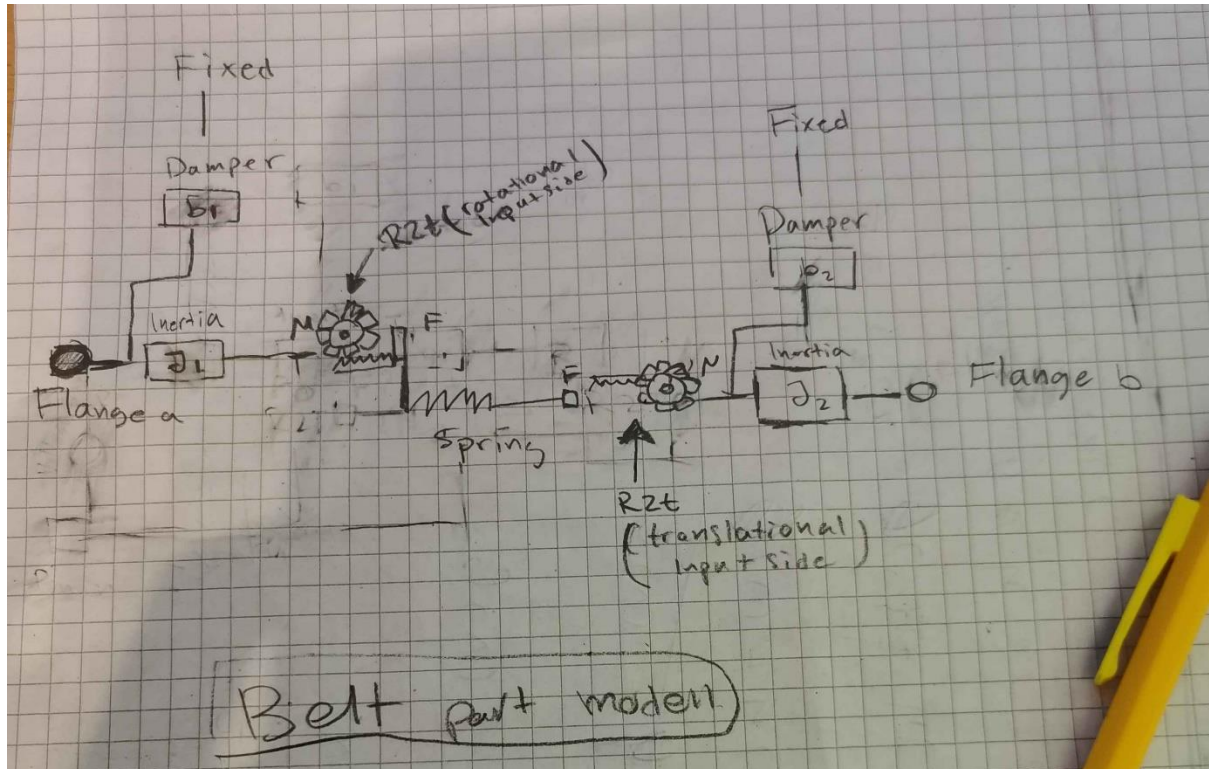 Fixed
Damper
b1
R2t (rotational
input side)
Inertia
J1
M
F
Flange a
Spring
F
R2t
(translational
input side)
Fixed
Damper
b2
M
Inertia
J2
Flange b
Belt part modell